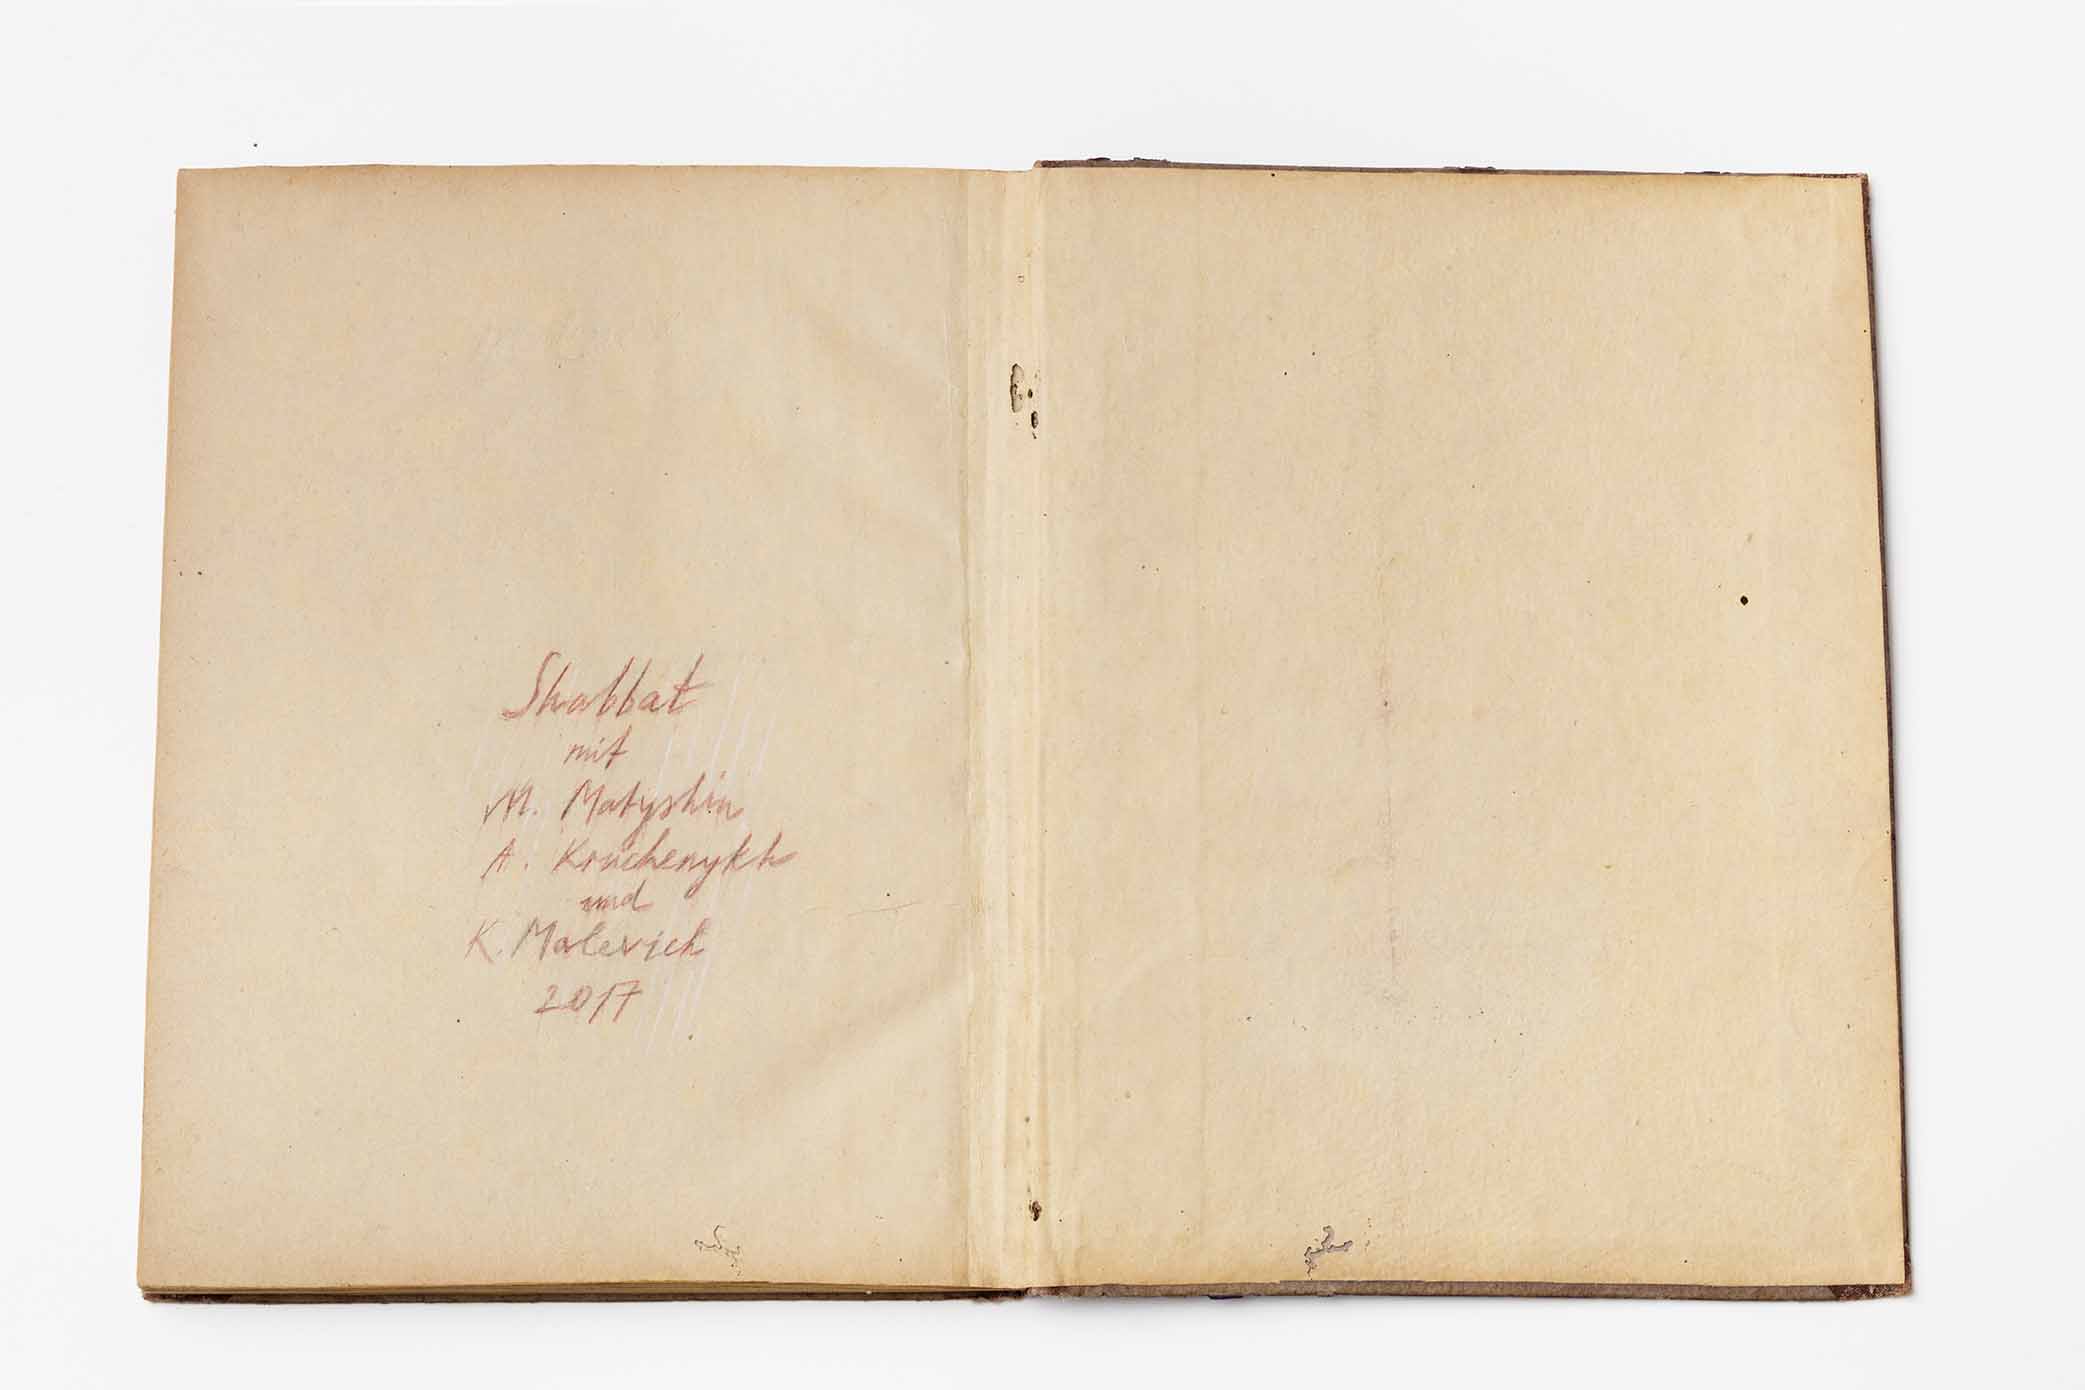 Shabbat
mit
M. Matyshin
A. Kruchenykh
und
K. Malevich
2017